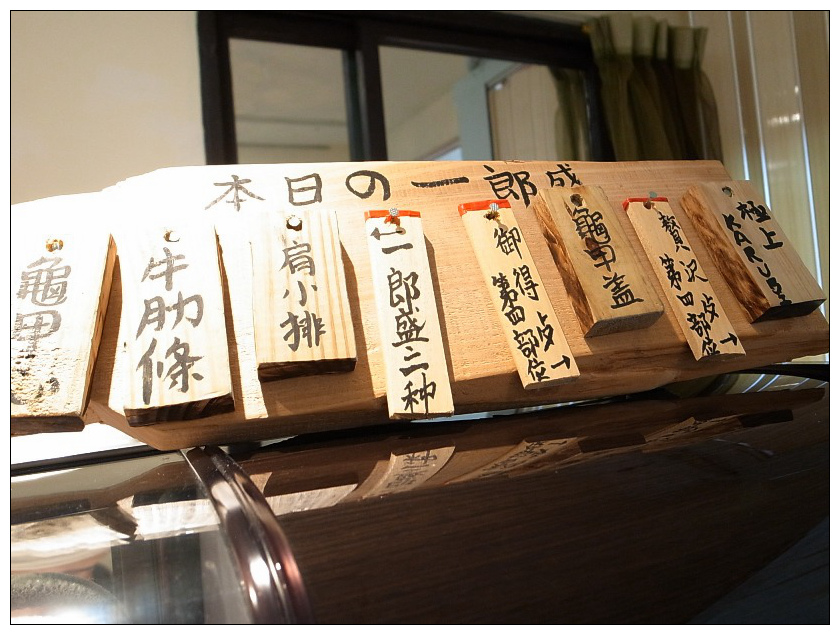 本日の一郎成
龜甲
牛肋條
肩小排
仁一郎盛二种
御得
第四部位→
龜甲蓋
贅沢
第四部位→
極上
KARUBI